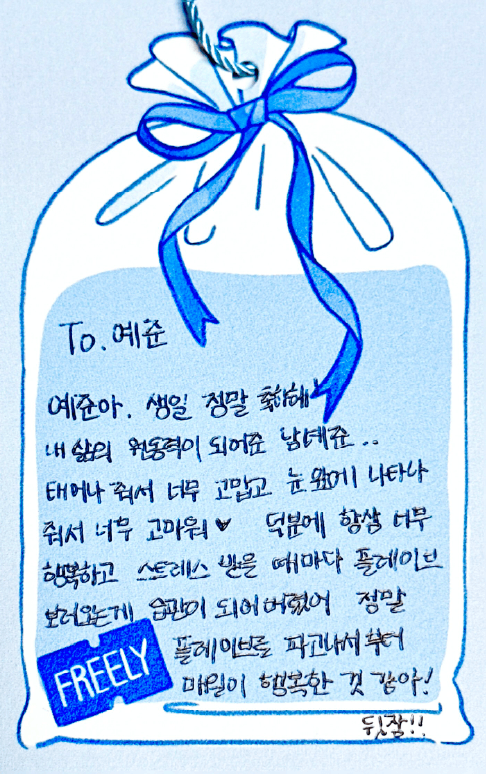 To. 예준
예준아. 생일 정말 축하해
내 삶의 원동력이 되어준 남예준..
태어나 줘서 너무 고맙고 눈 앞에 나타나
줘서 너무 고마워♥ 덕분에 항상 너무
행복하고 스트레스 받을 때마다 플레이브
보러오는게 습관이 되어버렸어 정말
플레이브를 파고나서부터
매일이 행복한 것 같아!
FREELY
뒷장!!